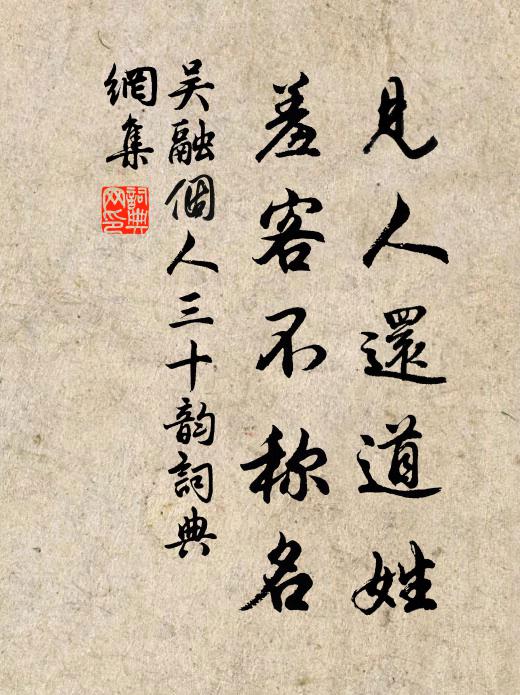 見人還道姓
羞客不称名
吴融個人三十韵詞典
網集
詞典
网印